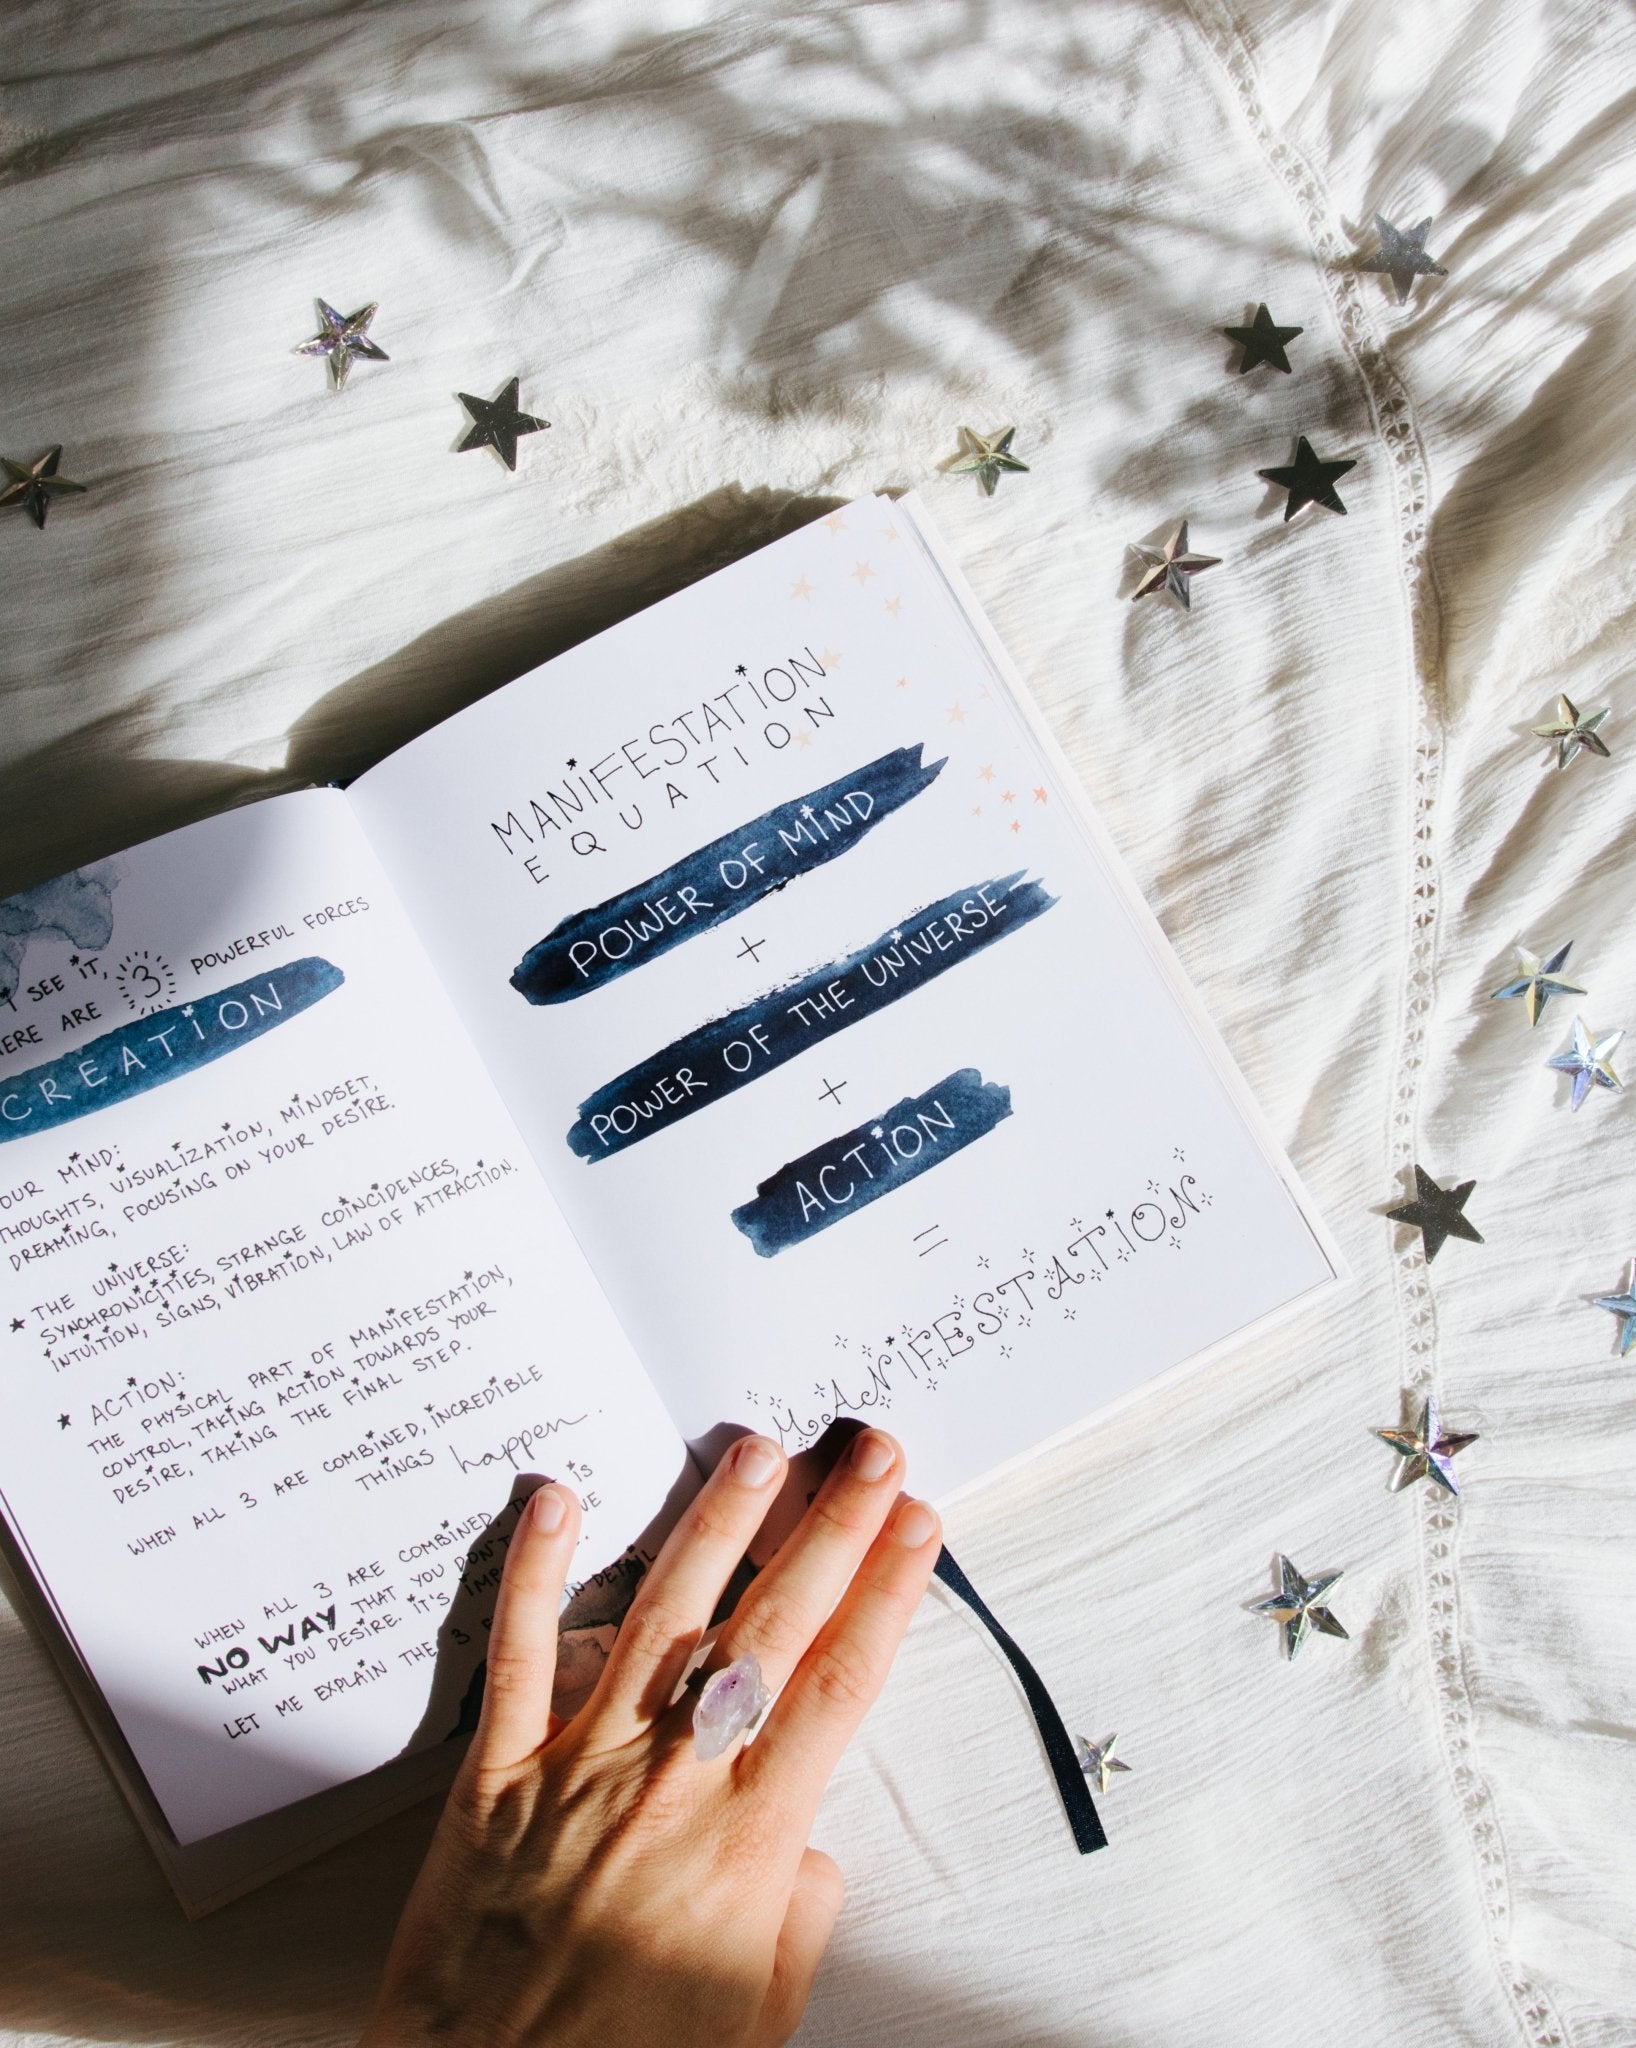 I SEE IT,
ARE 3 POWERFUL FORCES
CREATION
MIND:
THOUGHTS, VISUALIZATION, MINDSET,
DREAMING, FOCUSING ON YOUR DESIRE.
★ THE UNIVERSE:
SYNCHRONICITIES, STRANGE COINCIDENCES,
INTUITION, SIGNS, VIBRATION, LAW OF ATTRACTION.
★ ACTION:
THE PHYSICAL PART OF MANIFESTATION,
CONTROL, TAKING ACTION TOWARDS YOUR
DESIRE, TAKING THE FINAL STEP.
WHEN ALL 3 ARE COMBINED, INCREDIBLE
THINGS happen.
WHEN ALL 3 ARE COMBINED, IS
NO WAY THAT YOU DON'T
WHAT YOU DESIRE. IT'S
LET ME EXPLAIN THE 3 IN DETAIL
MANIFESTATION
EQUATION
POWER OF MIND
+
POWER OF THE UNIVERSE
+
ACTION
=
MANIFESTATION